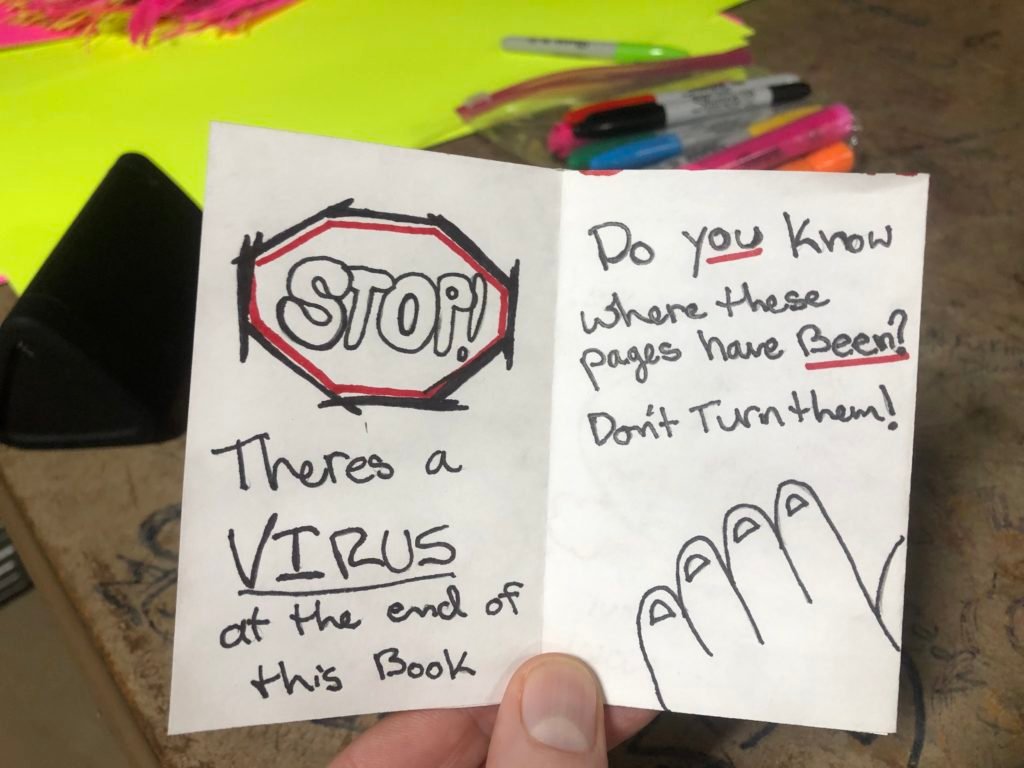 STOP!
Theres a
VIRUS
at the end of
this Book
Do you Know
where these
pages have Been?
Don't Turn them!